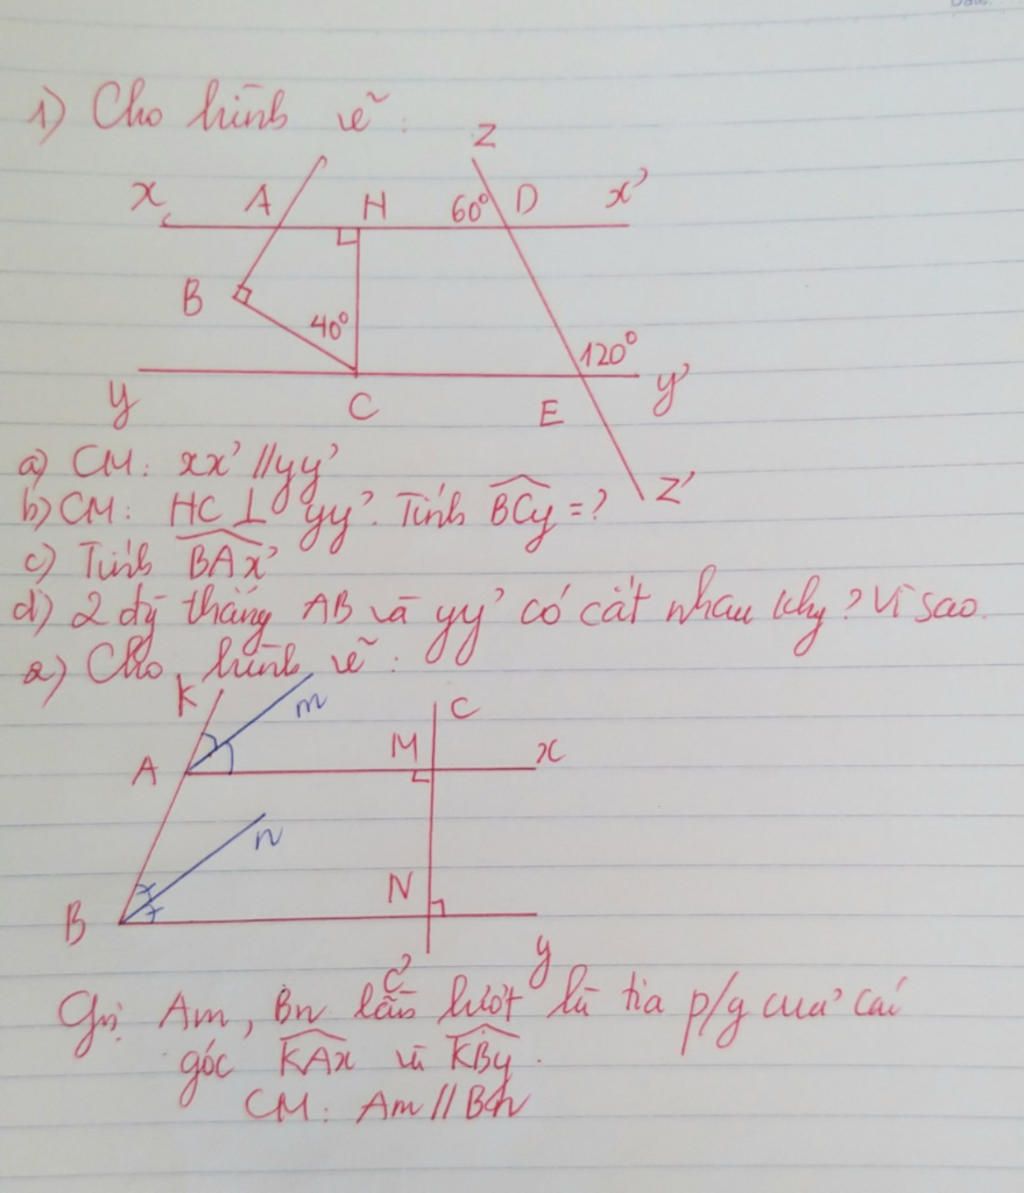 1) Cho hình vẽ:
z
x A H 60° D x'
B
40°
120°
y C E y'
z'
a) CM: xx' // yy'
b) CM: HC ⊥ yy'. Tính BCy = ?
c) Tính BAx'
d) 2 đg thẳng AB và yy' có cắt nhau khg? Vì sao.
2) Cho hình vẽ:
K m C
A M x
n
B N
C' y
Gọi Am, Bn lần lượt là tia p/g của các
góc KAx và KBy.
CM: Am // Bn